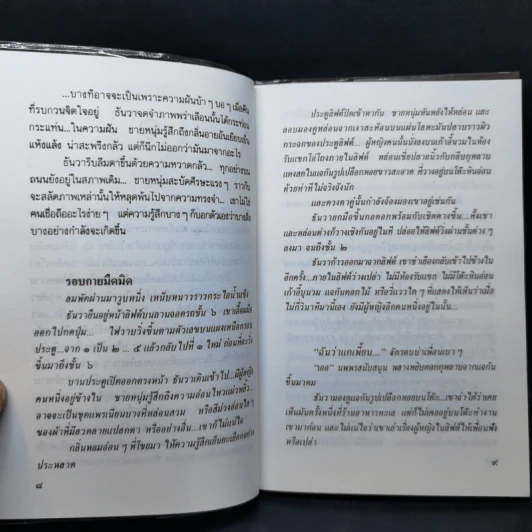 ...บางทีอาจจะเป็นเพราะความฝันบ้า ๆ บอ ๆ เมื่อคืน
ที่รบกวนจิตใจอยู่ ธันวาจดจำภาพพร่าเลือนนั้นได้กระท่อน
กระแท่น...ในความฝัน ชายหนุ่มรู้สึกถึงกลิ่นอายอันเยียบเย็น
แห้งแล้ง น่าสะพรึงกลัว แต่ก็นึกไม่ออกว่ามันมาจากอะไร
ธันวารีบลืมตาขึ้นด้วยความหวาดกลัว ทุกอย่างบน
ถนนยังอยู่ในสภาพเดิม... ชายหนุ่มสะบัดศีรษะแรง ๆ ราวกับ
จะสลัดภาพเหล่านั้นให้หลุดพ้นไปจากความทรงจำ... เขาไม่ใช่
คนเชื่อถืออะไรง่าย ๆ แต่ความรู้สึกบาง ๆ ก็บอกตัวเองว่าบางสิ่ง
บางอย่างกำลังจะเกิดขึ้น
รอบกายมืดมิด
ลมพัดผ่านมาวูบหนึ่ง เหน็บหนาวราวกระไอน้ำแข็ง
ธันวายืนอยู่หน้าลิฟต์บนลานจอดรถชั้น ๖ เขาเอื้อมมือ
ออกไปกดปุ่ม... ไฟวาบวิ่งขึ้นตามตัวเลขบนแผงเหนือกรอบ
ประตู...จาก ๑ เป็น ๒ ... ๕ แล้วกลับไปที่ ๑ ใหม่ ก่อนที่จะวิ่ง
ขึ้นมาถึงชั้น ๖
บานประตูเปิดออกตรงหน้า ธันวาเดินเข้าไป...มีผู้หญิง
คนหนึ่งอยู่ข้างใน ชายหนุ่มรู้สึกถึงความอ่อนไหวแผ่วพลิ้ว...
อาจจะเป็นชุดแพรเนียนบางที่หล่อนสวม หรือสีม่วงอ่อนใส ๆ
ของผ้าที่มีลวดลายแปลกตา หรืออย่างอื่น...เขาก็ไม่แน่ใจ
กลิ่นหอมอ่อน ๆ ที่โชยมา ให้ความรู้สึกเย็นยะเยือกอย่าง
ประหลาด
๘
ประตูลิฟต์ปิดเข้าหากัน ชายหนุ่มหันหลังให้หล่อน และ
ลอบมองดูหล่อนจากเงาสะท้อนบนแผ่นโลหะมันปลาบราวผิว
กระจกของประตูลิฟต์... ผู้หญิงคนนั้นนั่งลงบนเก้าอี้นวมในห้อง
รับแขกโอ่โถงภายในลิฟต์ หล่อนเขี่ยปลายนิ้วกับกลีบกุหลาบ
แดงสดในแจกันรูปเปลือกหอยขาวสะอาด ที่วางอยู่บนโต๊ะหินอ่อน
ด้วยท่าทีไม่จริงจังนัก
และดวงตาคู่นั้นกำลังจ้องมองเขาอยู่เช่นกัน
ธันวายกมือขึ้นกอดอกพร้อมกับเชิดคางขึ้น...ทั้งเขา
และหล่อนต่างก็วางเชิงกันอยู่ในที ปล่อยให้ลิฟต์วิ่งผ่านชั้นต่าง ๆ
ลงมา จนถึงชั้น ๒
ธันวาก้าวออกมาจากลิฟต์ เขาชำเลืองกลับเข้าไปข้างใน
อีกครั้ง...ภายในลิฟต์ว่างเปล่า ไม่มีห้องรับแขก ไม่มีโต๊ะหินอ่อน
เก้าอี้บุนวม แจกันดอกไม้ หรือวี่แววใด ๆ ที่แสดงให้เห็นว่าเมื่อ
ไม่กี่วินาทีมานี้เอง ยังมีผู้หญิงอีกคนหนึ่งอยู่ในนั้น...
“ฉันว่าแกเพี้ยน...” จักรตบบ่าเพื่อนเบา ๆ
“เออ” นพพาสนับสนุน พลางหยิบดอกกุหลาบจากแจกัน
ขึ้นมาดม
ธันวามองดูแจกันรูปเปลือกหอยบนโต๊ะ...เขาจำได้ว่าเคย
เห็นมันครั้งหนึ่งที่ร้านอาหารทะเล แต่ก็ไม่เคยอยู่บนโต๊ะทำงาน
เขามาก่อน และไม่แน่ใจว่าเขาเล่าเรื่องผู้หญิงในลิฟต์ให้เพื่อนฟัง
หรือเปล่า
๙